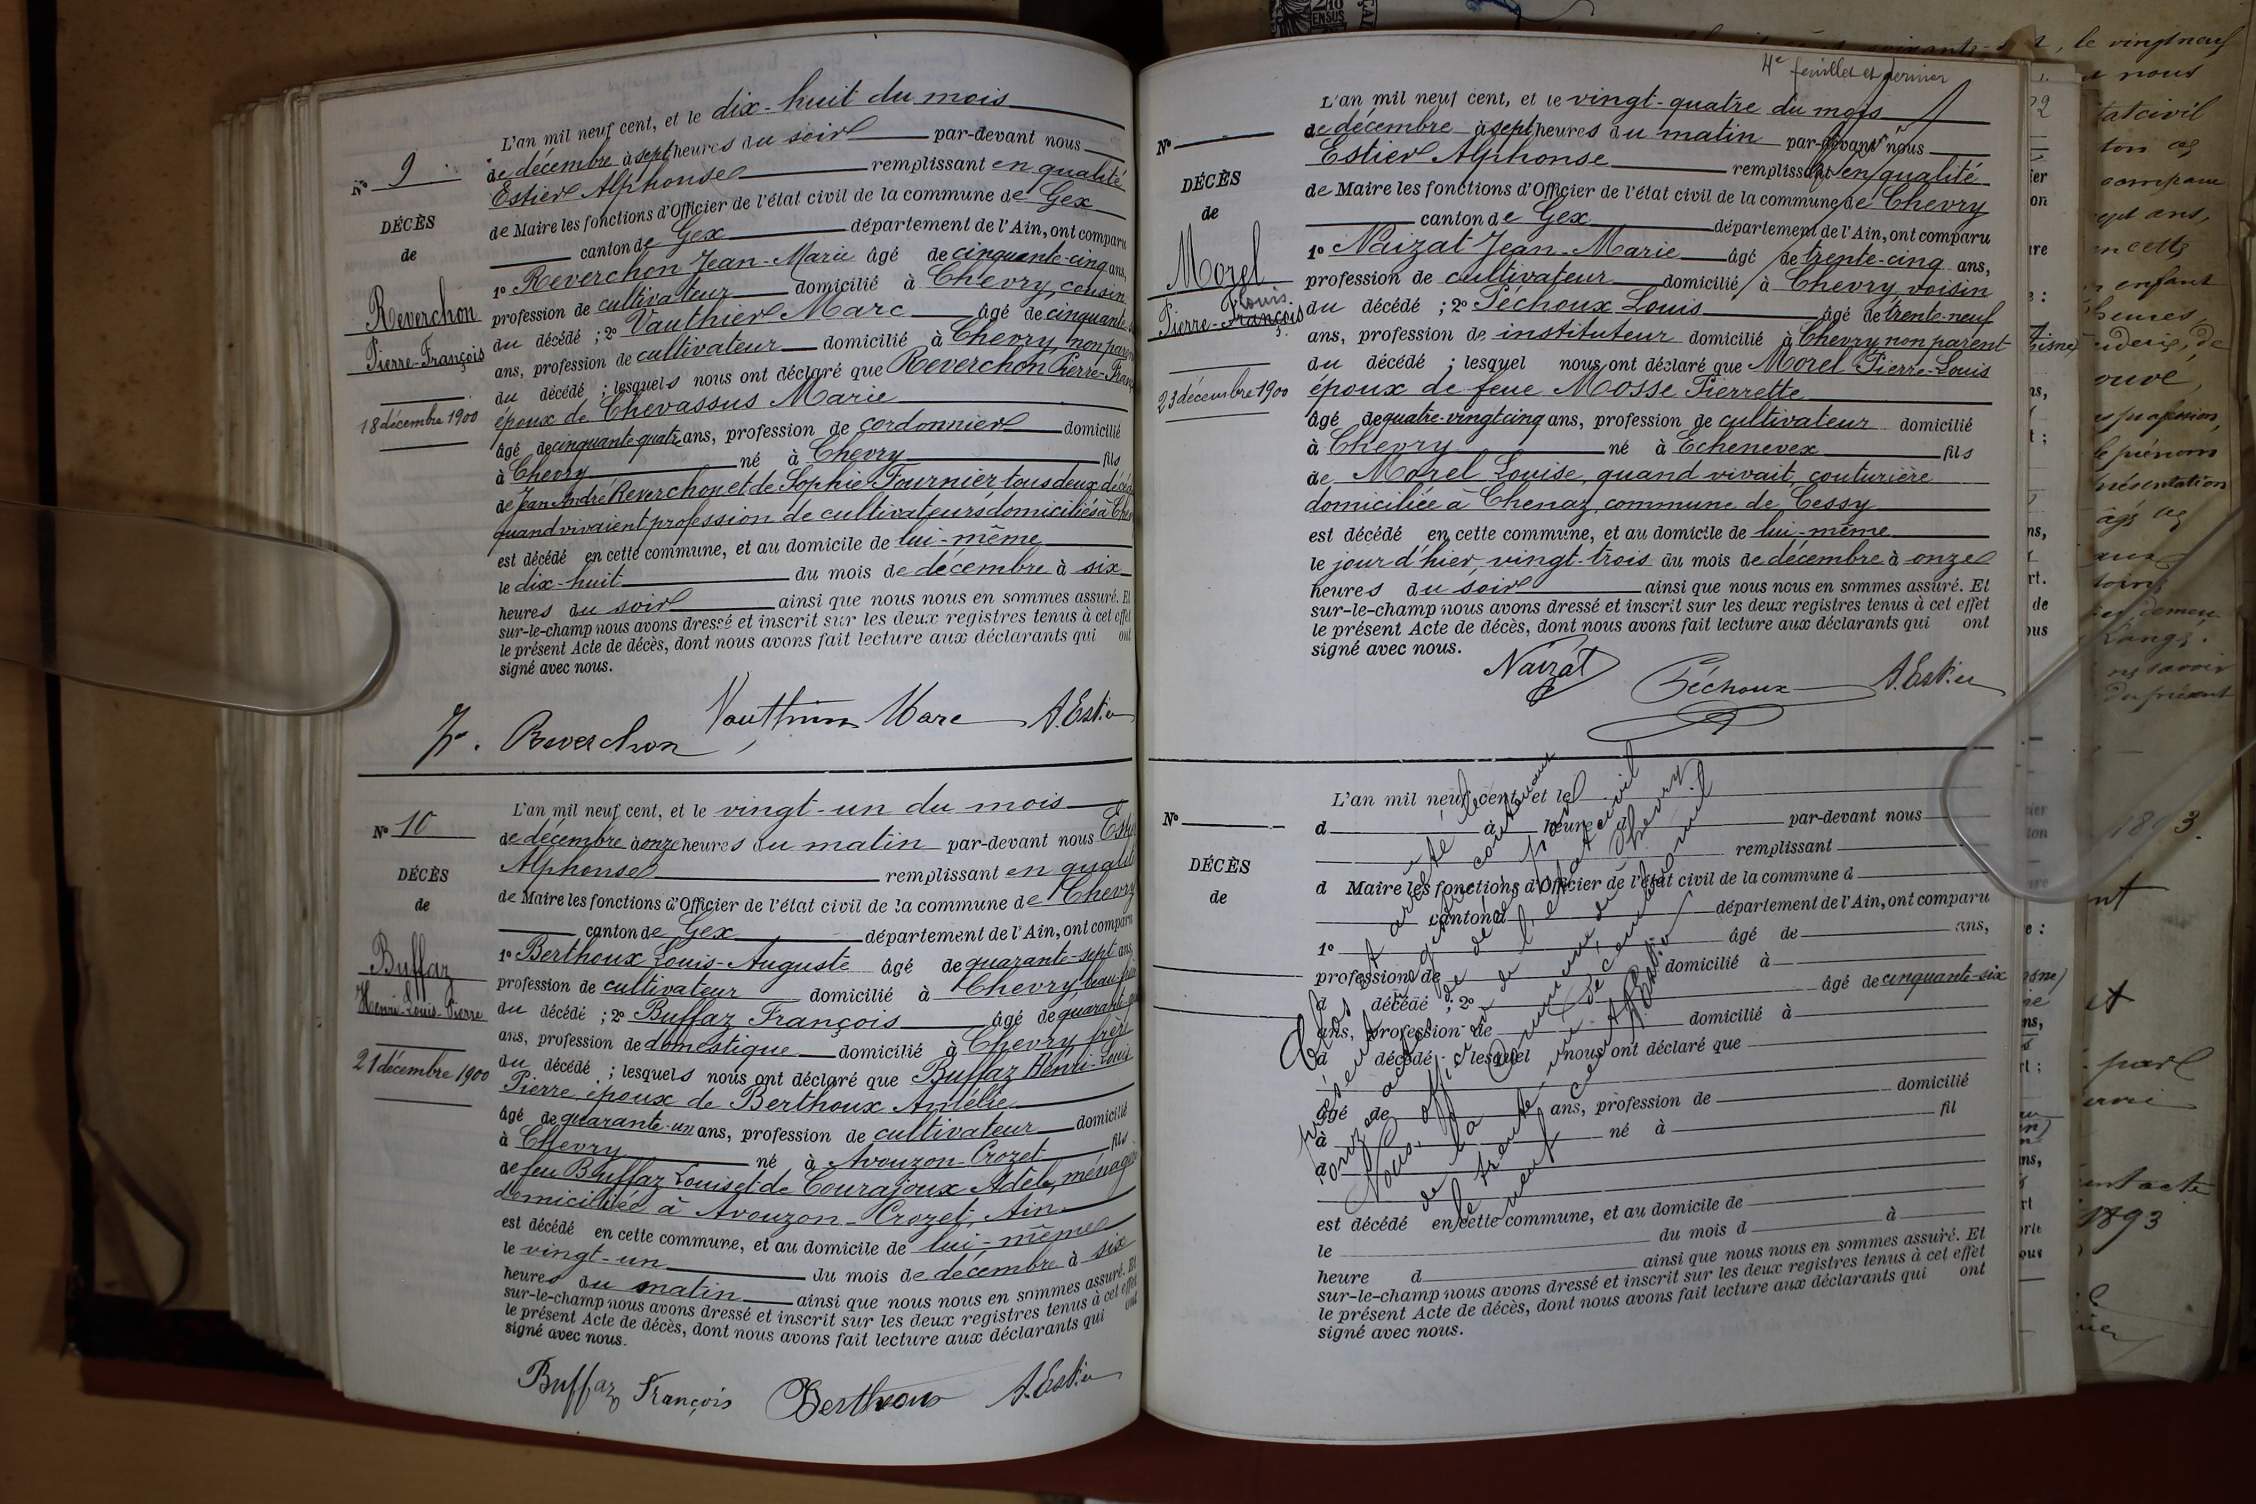 N° 9
DÉCÈS
de
Reverchon
Pierre-François
18 décembre 1900
L'an mil neuf cent, et le dix-huit du mois
de décembre à sept heures du soir par-devant nous
Estier Alphonse remplissant en qualité
de Maire les fonctions d'Officier de l'état civil de la commune de Gex
canton de Gex département de l'Ain, ont comparu
1° Reverchon Jean-Marie âgé de cinquante-cinq ans,
profession de cultivateur domicilié à Chevry, cousin
du décédé ; 2° Vauthier Marc âgé de cinquante
ans, profession de cultivateur domicilié à Chevry, non parent
du décédé ; lesquels nous ont déclaré que Reverchon Pierre-Franç
époux de Chevassus Marie
âgé de cinquante-quatre ans, profession de cordonnier domicilié
à Chevry né à Chevry fils
de Jean André Reverchon et de Sophie Fournier tous deux décéd
quand vivaient profession de cultivateurs domiciliés à Chev
est décédé en cette commune, et au domicile de lui-même
le dix-huit du mois de décembre à six
heures du soir ainsi que nous nous en sommes assuré. Et
sur-le-champ nous avons dressé et inscrit sur les deux registres tenus à cet effet
le présent Acte de décès, dont nous avons fait lecture aux déclarants qui ont
signé avec nous.
Reverchon Marc A. Estier
N° 10
DÉCÈS
de
Buffaz
Henri-Louis-Pierre
21 décembre 1900
L'an mil neuf cent, et le vingt-un du mois
de décembre à onze heures du matin par-devant nous Estier
Alphonse remplissant en qualité
de Maire les fonctions d'Officier de l'état civil de la commune de Chevry
canton de Gex département de l'Ain, ont comparu
1° Berthoux Louis-Auguste âgé de quarante-sept ans,
profession de cultivateur domicilié à Chevry, beau-frère
du décédé ; 2° Buffaz François âgé de quarante
ans, profession de domestique domicilié à Chevry frère
du décédé ; lesquels nous ont déclaré que Buffaz Henri-Louis
Pierre, époux de Berthoux Amélie
âgé de quarante-un ans, profession de cultivateur domicilié
à Chevry né à Avouzon-Crozet fils
de feu Buffaz Louis et de Courajoux Adèle, ménagère
domiciliée à Avouzon-Crozet, Ain
est décédé en cette commune, et au domicile de lui-même
le vingt-un du mois de décembre à six
heures du matin ainsi que nous nous en sommes assuré. Et
sur-le-champ nous avons dressé et inscrit sur les deux registres tenus à cet effet
le présent Acte de décès, dont nous avons fait lecture aux déclarants qui ont
signé avec nous.
Buffaz François Berthoux A. Estier
4e feuillet et dernier
N°
DÉCÈS
de
Morel
Louis.
Pierre-François
23 décembre 1900
L'an mil neuf cent, et le vingt-quatre du mois
de décembre à sept heures du matin par-devant nous
Estier Alphonse remplissant en qualité
de Maire les fonctions d'Officier de l'état civil de la commune de Chevry
canton de Gex département de l'Ain, ont comparu
1° Naizat Jean-Marie âgé de trente-cinq ans,
profession de cultivateur domicilié à Chevry, voisin
du décédé ; 2° Péchoux Louis âgé de trente-neuf
ans, profession de instituteur domicilié à Chevry non parent
du décédé ; lesquel nous ont déclaré que Morel Pierre-Louis
époux de feue Mosse Pierrette
âgé de quatre-vingt cinq ans, profession de cultivateur domicilié
à Chevry né à Echenevex fils
de Morel Louise, quand vivait, couturière
domiciliée à Chenaz, commune de Cessy
est décédé en cette commune, et au domicile de lui-même
le jour d'hier, vingt-trois du mois de décembre à onze
heures du soir ainsi que nous nous en sommes assuré. Et
sur-le-champ nous avons dressé et inscrit sur les deux registres tenus à cet effet
le présent Acte de décès, dont nous avons fait lecture aux déclarants qui ont
signé avec nous.
Naizat Péchoux A. Estier
N°
DÉCÈS
de
L'an mil neuf cent, et le
d à heure d par-devant nous
remplissant
d Maire les fonctions d'Officier de l'état civil de la commune d
canton d département de l'Ain, ont comparu
1° âgé de ans,
profession de domicilié à
d décédé ; 2° âgé de cinquante-six
ans, profession de domicilié à
d décédé ; lesquel nous ont déclaré que
âgé de ans, profession de domicilié
à né à fil
d
est décédé en cette commune, et au domicile de
le du mois d à
heure d ainsi que nous nous en sommes assuré. Et
sur-le-champ nous avons dressé et inscrit sur les deux registres tenus à cet effet
le présent Acte de décès, dont nous avons fait lecture aux déclarants qui ont
signé avec nous.
Clos et arrêté le
présent registre contenant
onze actes de décès, par
Nous, officier de l'état civil
de la Commune de Chevry
le trente-un Décembre mil
neuf cent
A. Estier